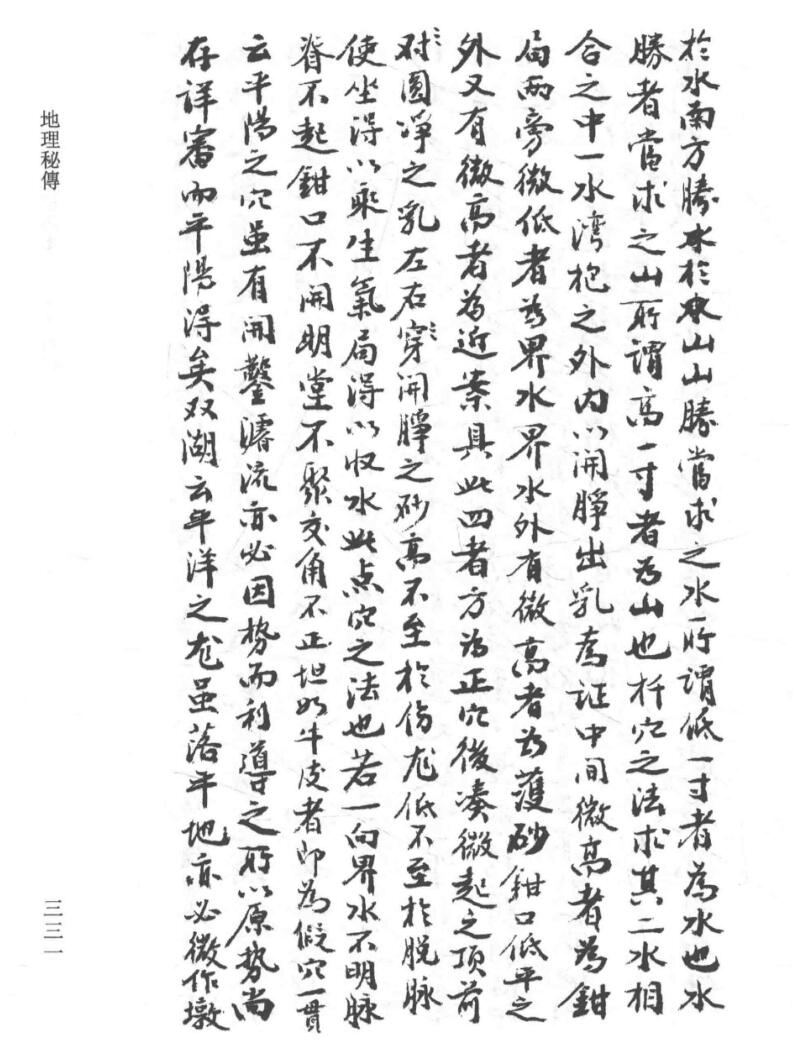 於水南方勝水於水山山勝當求之水所謂低一寸者為水也水
勝者當求之山所謂高一寸者为山也扦穴之法求其二水相
合之中一水湾抱之外内以開睜出乳為证中间微高者為鉗
局兩旁微低者为界水界水外有微高者为護砂鉗口低平之
外又有微高者為近案具此四者方为正穴後凑微起之頂前
对圓净之乳左右穿開睜之砂高不至於伤龙低不至於脱脉
使坐得以乘生氣局得以收水此点穴之法也若一向界水不明脉
脊不起鉗口不開明堂不聚交角不正坦如牛皮者即為假穴一貫
云平陽之穴虽有開鑿濬流亦必因势而利導之所以原势尚
存详審而平陽得矣双湖云平洋之龙虽落平地亦必微作墩
地理秘傳
三三一